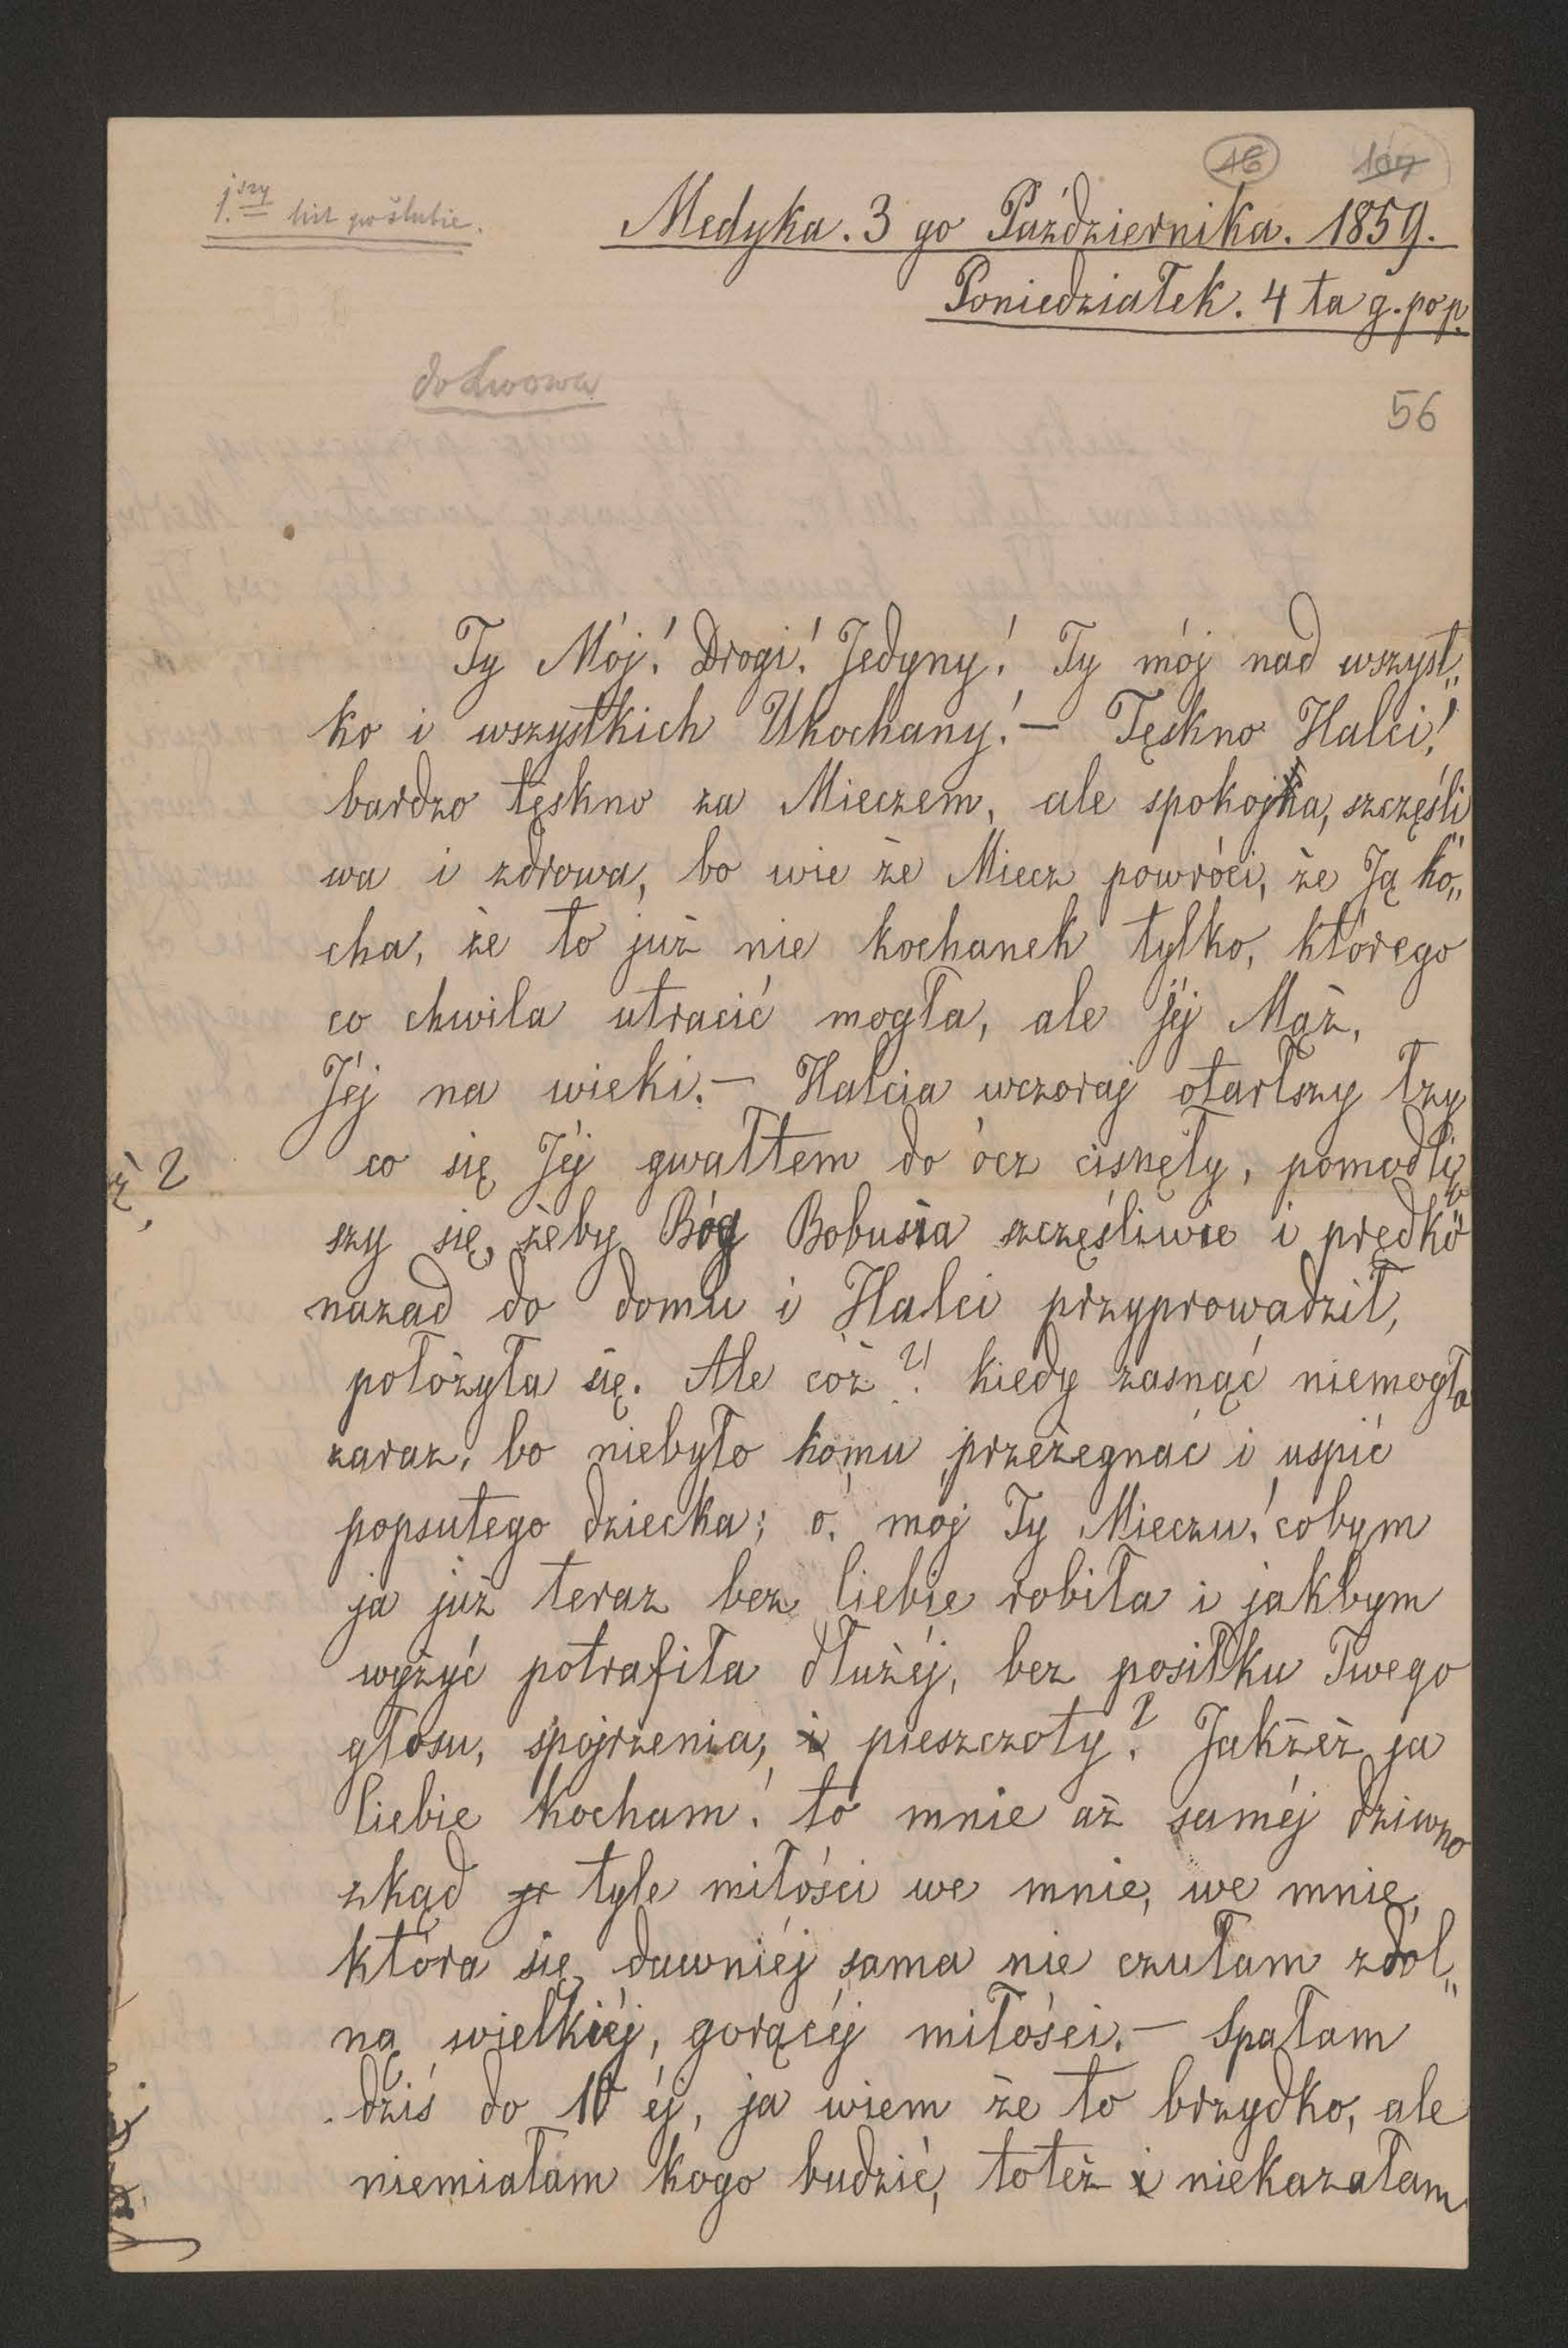 16 107
1.szy list po ślubie.
Medyka. 3 go Października. 1859.
Poniedziałek. 4 ta g. po p.
do Lwowa
56
Ty Mój! Drogi! Jedyny! Ty mój nad wszyst„
ko i wszystkich Ukochany! — Tęskno Halci!
bardzo tęskno za Mieczem, ale spokojna, szczęśli„
wa i zdrowa, bo wie że Miecz powróci, że Ją ko„
cha, że to już nie kochanek tylko, którego
co chwila utracić mogła, ale Jéj Mąż,
Jéj na wieki. — Halcia wczoraj otarłszy łzy
co się Jéj gwałtem do ócz cisnęły, pomodliw„
szy się, żeby Bóg Bobusia szczęśliwie i prędko
nazad do domu i Halci przyprowadził,
położyła się. Ale cóż?! kiedy zasnąć niemogła
zaraz, bo niebyło komu przeżegnać i uspić
popsutego dziecka; o! mój Ty Mieczu! cobym
ja już teraz bez Ciebie robiła i jakbym
wyżyć potrafiła dłużéj, bez posiłku Twego
głosu, spójrzenia, i pieszczoty? Jakżeż ja
Ciebie kocham! to mnie aż saméj dziwno
zkąd je tyle miłości we mnie, we mnie,
która się dawniéj sama nie czułam zdol„
ną wielkiéj, gorącéj miłości. — Spałam
dziś do 10 éj, ja wiem że to brzydko, ale
niemiałam kogo budzić, toteż i niekazałam